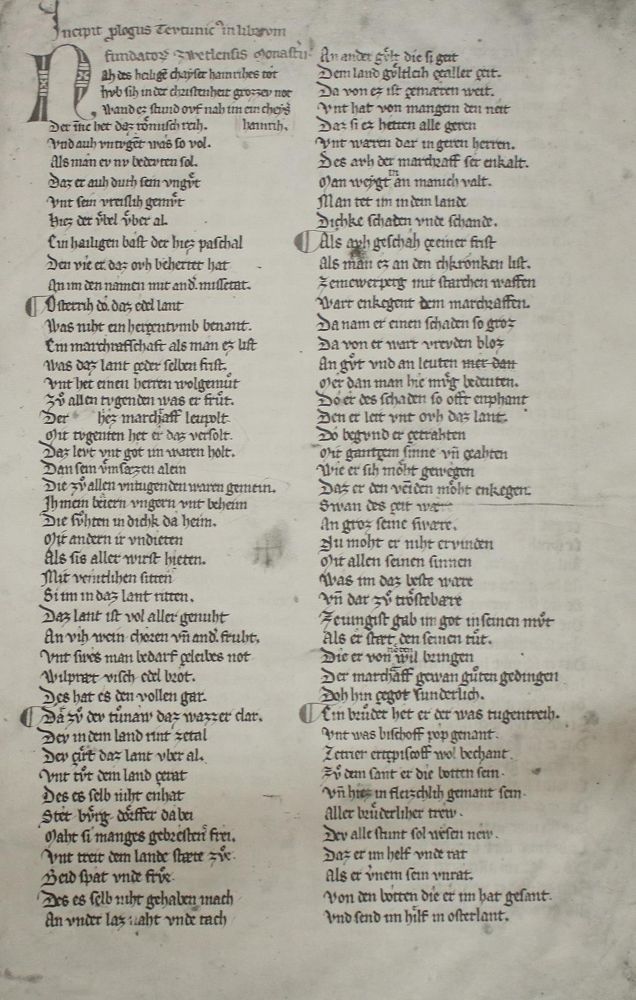 Incipit plogus Tertunic in librum
fundatorũ Zwetlensis Monastii
Nah des heilige chayser hainrihes tot
hvb sih in der christenheit grozzer not
Wand ez stund ovf nah im ein cheiser
hainrih.
Der ine het daz römisch reih.
Vnd auh vntvget was so vol.
Als man ev nv bedevten sol.
Daz er auh durh sein vngvt
Vnt sein vreislih gemvt
Hiez der vbel vber al.
Ein hailigen bast der hiez paschal
Den vie er daz ovh behertet hat
An im den namen mit and missetat.
Osterrih do daz edel lant
Was niht ein herzentvmb benant.
Ein marchraffschaft als man ez list
Was daz lant zeder selben frist.
Vnt het einen herren wolgemut
Zv allen tvgenden was er frvt.
Der hez marchaff leupolt
Mit tvgenten het er daz versolt.
Daz levt vnt got im waren holt.
Dan sein vmsæzen alein
Die zv allen vntugenden waren gemein.
Ih mein beiern vngern vnt beheim
Die svhten in dichk da heim.
Mit andern ir vndieten
Als sis aller wirst hieten.
Mit veintlihen sitten
Si im in daz lant ritten.
Daz lant ist vol aller genuht
An vih wein chozen vñ and fruht.
Vnt swes man bedarf zeleibes not
Wilpræt visch edel brot.
Des hat es den vollen gar.
Da zv dev tunaw daz wazzer clar.
Dev in dem land rint zetal
Dev zirt daz lant vber al.
Vnt tvt dem land zerat
Des es selb niht enhat
Stet bvrg dorffer da bei
Maht si manges gebresten frei.
Vnt treit dem lande stæte zv
Beid spat vnde frv
Des es selb niht gehaben mach
An vnder laz naht vnde tach
An ander gvlt die si geit
Dem land gvltleih zealler zeit.
Da von ez ist gemæret weit.
Vnt hat von mangem den neit
Daz si ez hetten alle geren
Vnt waren dar in geren herren.
Des arh der marchraff ser enkalt.
Man weygt im an manich valt.
Man tet im in dem lande
Dichke schaden vnde schande.
Als auh geschah zeeiner frist
Als man ez an den chkroniken list.
Zemewerperg mit starchen waffen
Wart enkegent dem marchraffen.
Da nam er einen schaden so groz
Da von er wart vrevden bloz
An gvt vnd an leuten mer dan
Mer dan man hie mvg bedeuten.
Do er des schaden so offt enphant
Den er leit vnt ovh daz lant.
Do begvnd er zetrahten
Mit gantzem sinne vñ zeahten
Wie er sih moht gewegen
Daz er den veiden moht enkegen.
Swan des zeit wær
An groz seine swære.
Nu moht er niht erwinden
Mit allen seinen sinnen
Was im daz beste wære
Vñ dar zv trostebære
Zeuingist gab im got in seinen mvt
Als er stæt den seinen tut.
Die er von noten wil bringen
Der marchaff gewan guten gedingen
Doh hin zegot sunderlich.
Ein bruder het er der was tugentreih.
Vnt was bischoff pop genant.
Zetrier ertzpiscoff wol bechant.
Zv dem sant er die botten sein.
Vñ hiez in fleizchlih gemant sein.
Aller bruderliher trew.
Dev alle stunt sol wesen new.
Daz er im helf vnde rat
Als er vnem sein vnrat.
Von den botten die er im hat gesant.
Vnd send im hilf in osterlant.